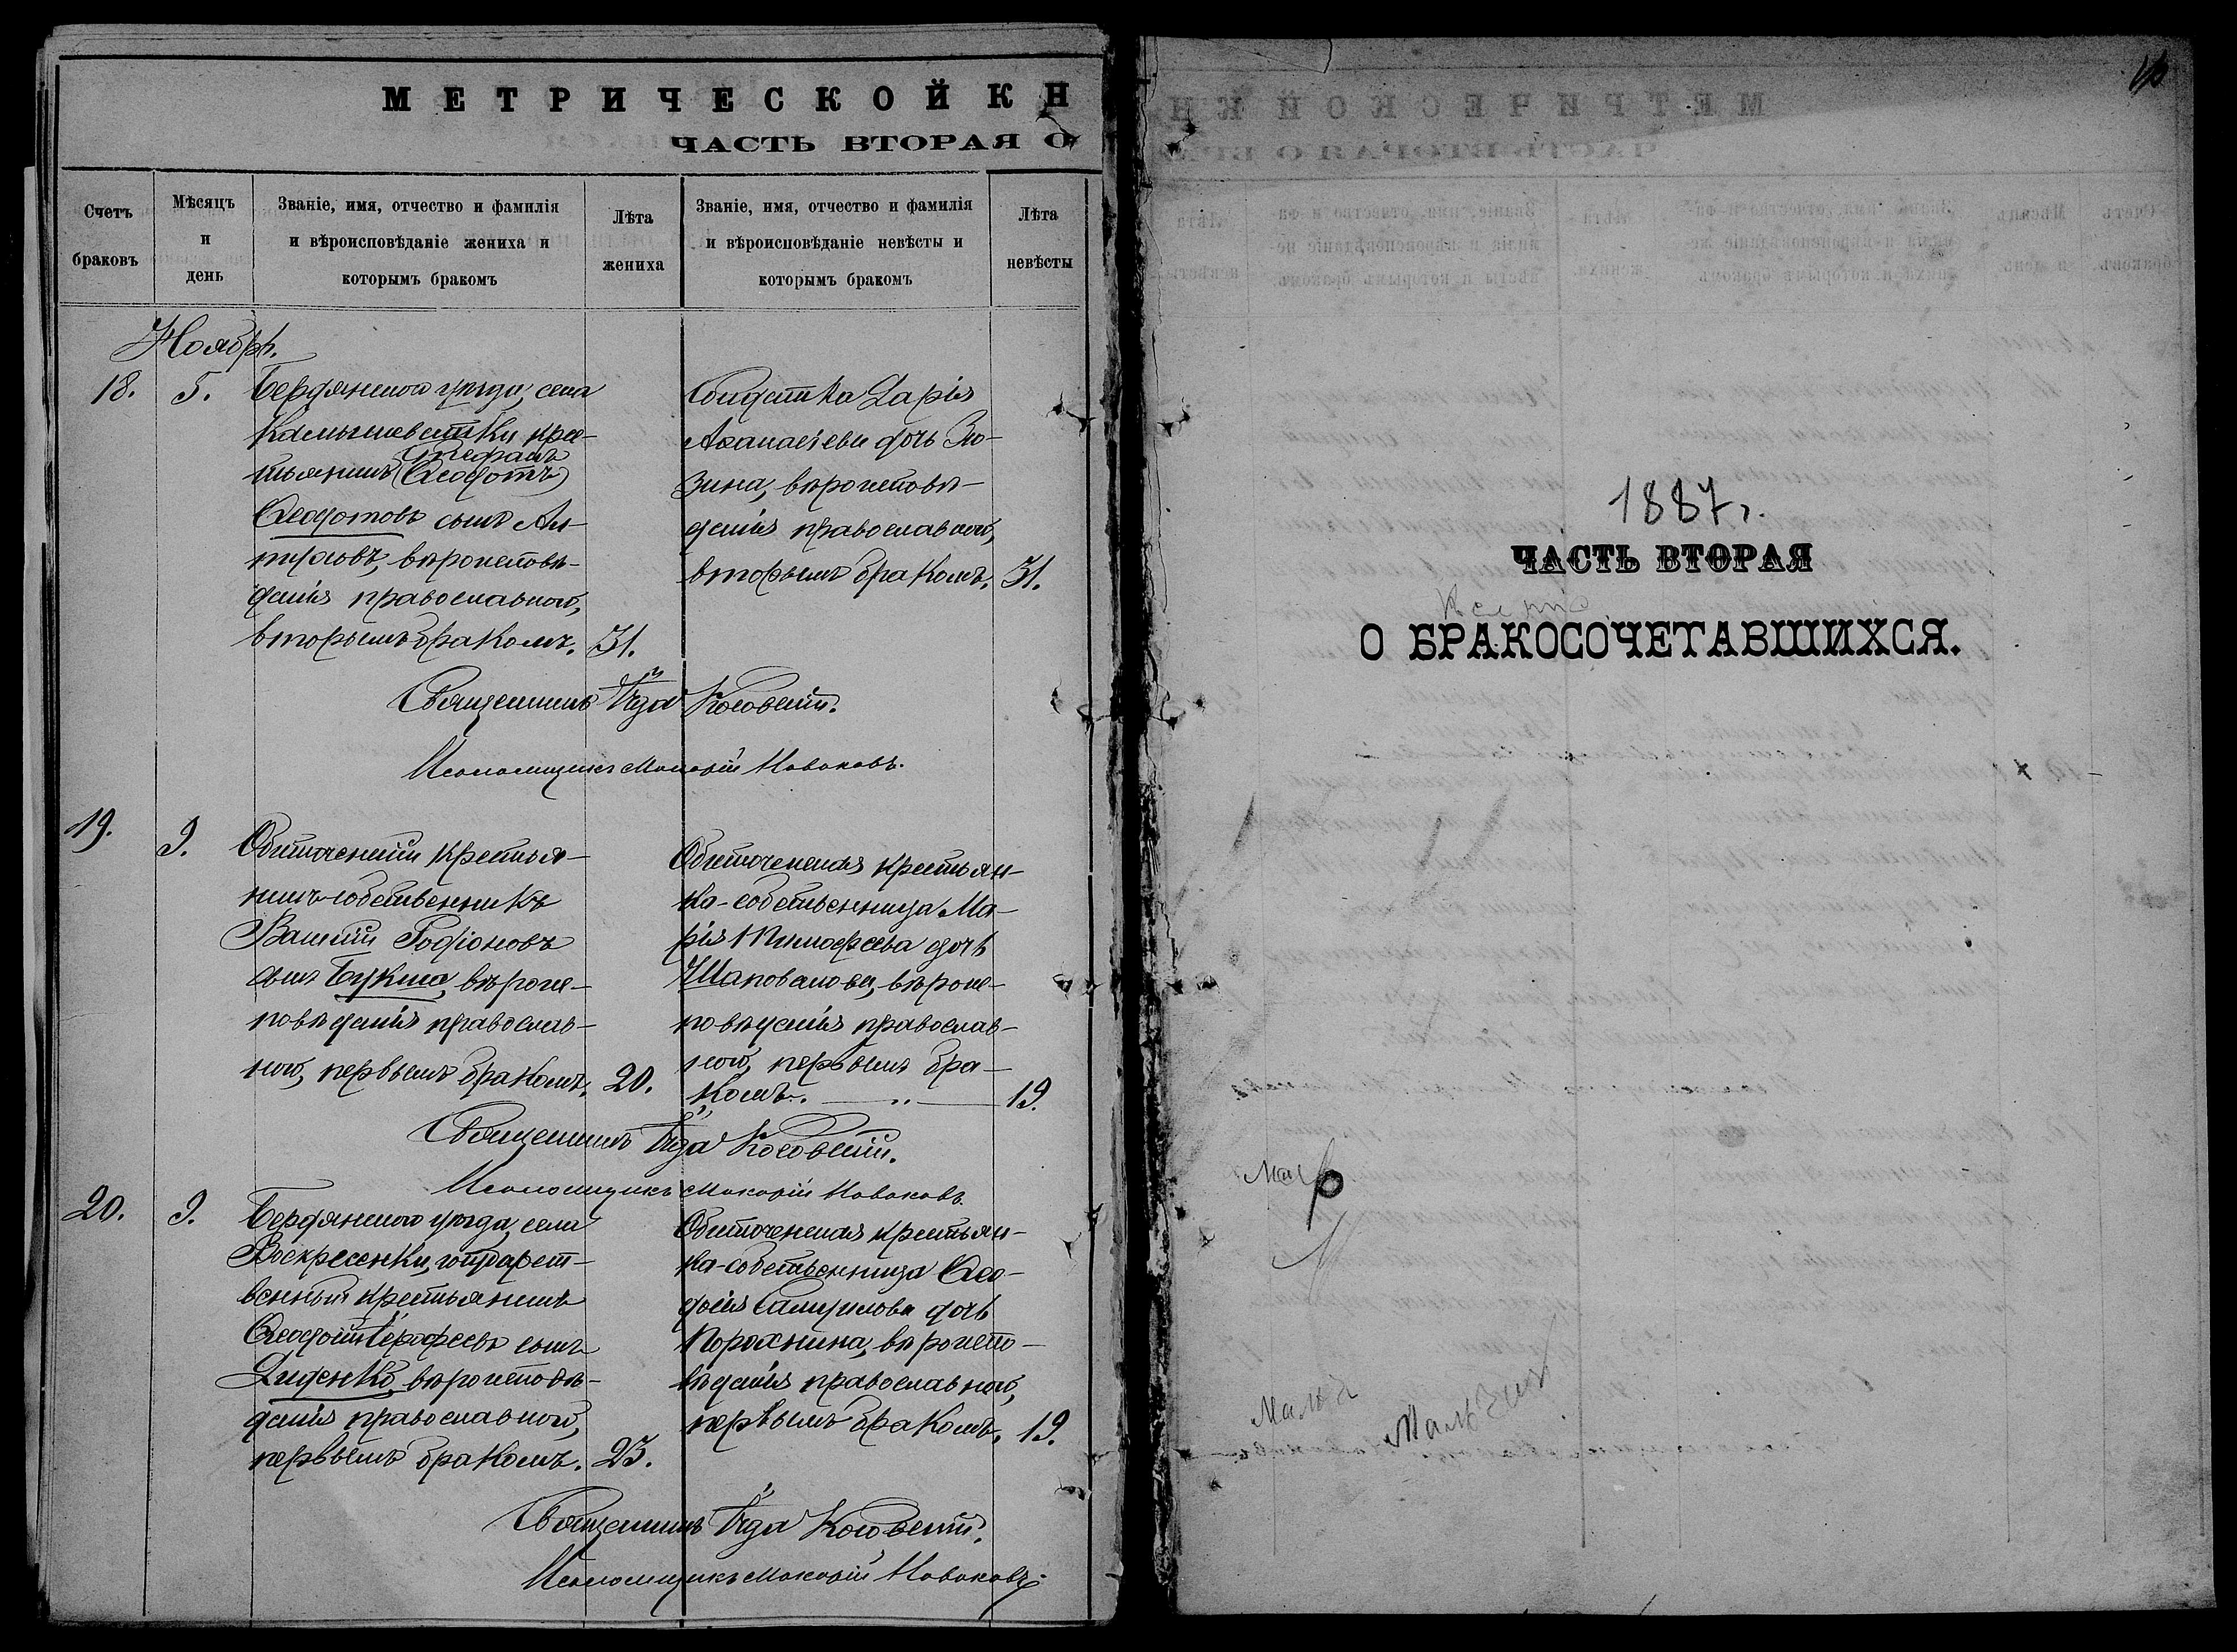 МЕТРИЧЕСКОЙ КН
ЧАСТЬ ВТОРАЯ О
Счетъ браковъ
Мѣсяцъ и день
Званіе, имя, отчество и фамилія
и вѣроисповѣданіе жениха и
которымъ бракомъ
Лѣта жениха
Званіе, имя, отчество и фамилія
и вѣроисповѣданіе невѣсты и
которымъ бракомъ
Лѣта невѣсты
Ноябрь.
18.
5.
Бердянскаго уѣзда, села
Камышеватки крес-
тьянинъ (Ѳеодотъ)
Стефанъ
Ѳеодотовъ сынъ
вѣроисповѣ-
данія православнаго,
вторымъ бракомъ.
31.
Солдатка Дарія
дочь
зина, вѣроисповѣ-
данія православнаго,
вторымъ бракомъ.
31.
Священникъ Косовскій.
Псаломщикъ Макарій Новаковъ.
19.
9.
Обиточенскій крестья-
нинъ-собственникъ
Василій Родіоновъ
сынъ Букша, вѣроис-
повѣданія православ-
наго, первымъ бракомъ.
20.
Обиточенская крестьян-
ка-собственница Ма-
рія Тимофеева дочь
Шаповалова, вѣроис-
повѣданія православ-
наго, первымъ бра-
комъ.
19.
Священникъ Косовскій.
Псаломщикъ Макарій Новаковъ.
20.
9.
Бердянскаго уѣзда, села
Воскресенки, государст-
венный крестьянинъ
Ѳеодосій Ерофеевъ сынъ
Диденко, вѣроисповѣ-
данія православнаго,
первымъ бракомъ.
23.
Обиточенская крестьян-
ка-собственница Ѳео-
досія дочь
Порохнина, вѣроиспо-
вѣданія православнаго,
первымъ бракомъ.
19.
Священникъ Косовскій.
Псаломщикъ Макарій Новаковъ.
1887 г.
ЧАСТЬ ВТОРАЯ
О БРАКОСОЧЕТАВШИХСЯ.